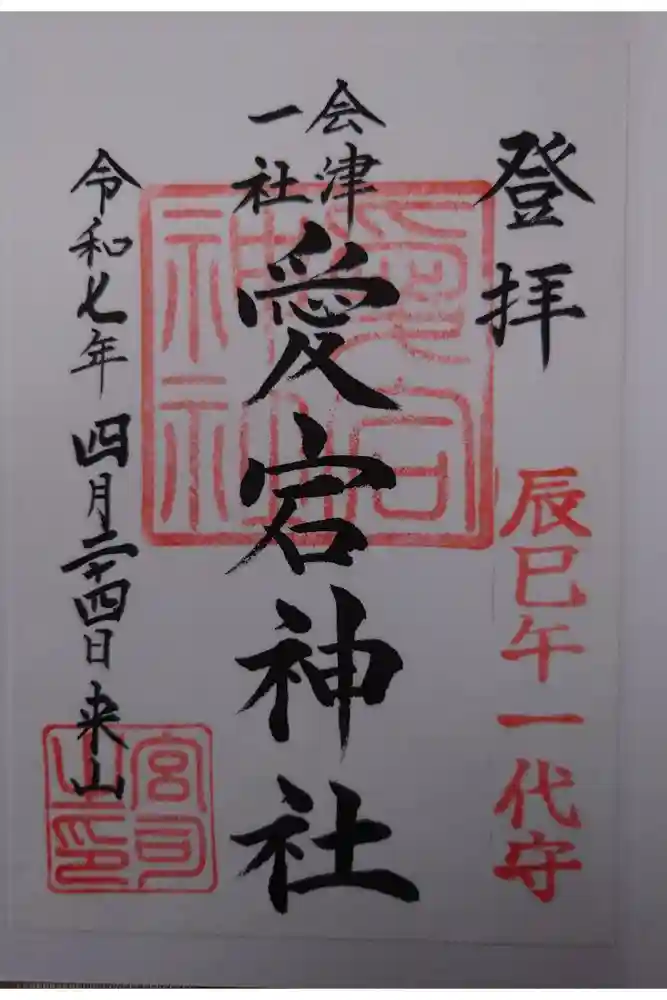 登拝
辰巳午一代守
会津
一社
愛宕神社
愛宕神社
令和七年四月二十四日来山
宮司之印